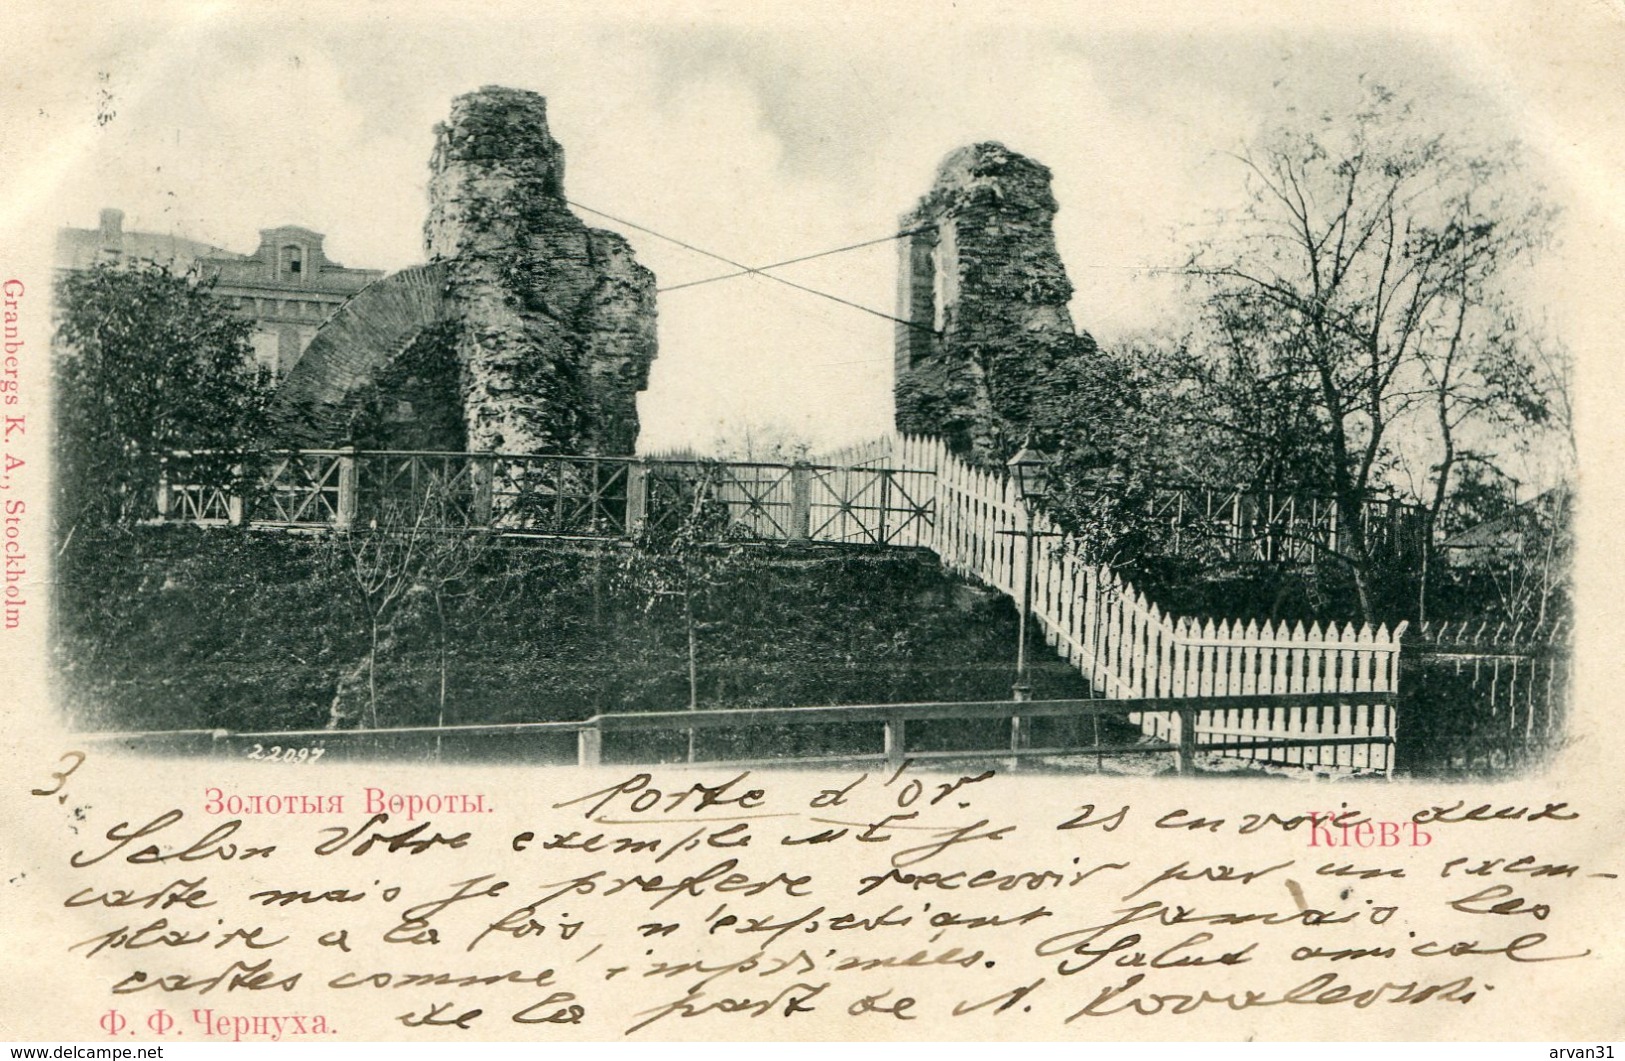 Granbergs K. A., Stockholm
22097
3.
Золотыя Вороты.
Porte d'or.
Кіевъ
Selon Votre exemple je envoie deux
carte mais je prefere recevoir par un exem-
plaire a la fois, n'expediant jamais les
cartes comme imprimées. Salut amical
de la part de N. Kovalevski
Ф. Ф. Чернуха.
www.delcampe.net
arvan31